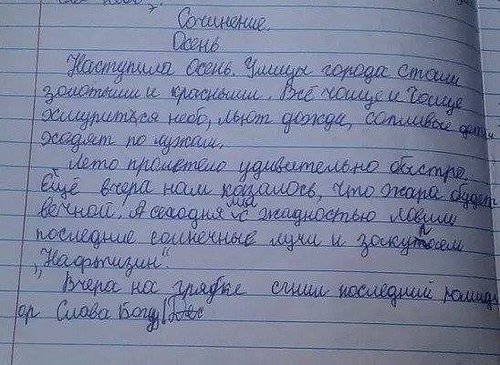 Сочинение.
Осень
Наступила осень. Улицы города стали
золотыми и красными. Всё чаще и чаще
хмуриться небо, льют дожди, сопливые дети
ходят по лужам.
Лето пролетело удивительно быстро.
Ещё вчера нам казалось, что жара будет
вечной. А сегодня мы с жадностью ловим
последние солнечные лучи и закупаем
„Нафтизин".
Вчера на грядке сгнил последний помид
ор Слава Богу!